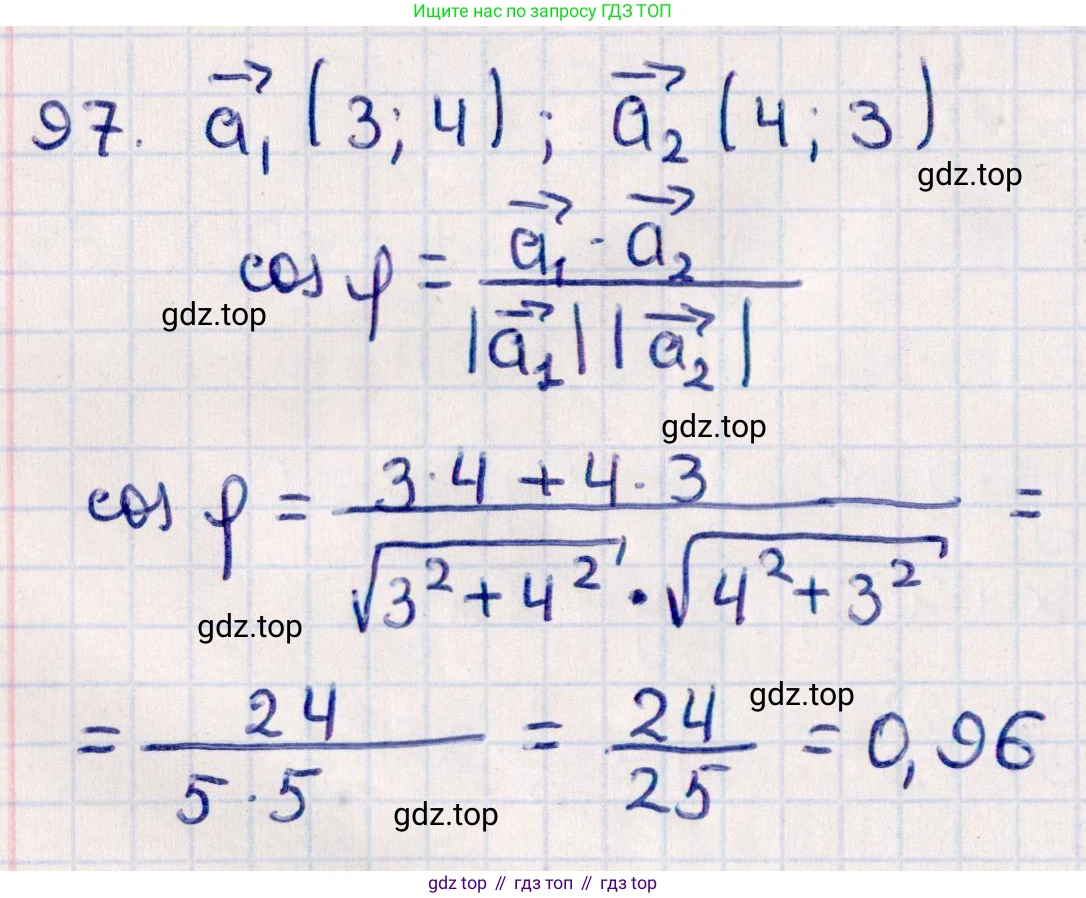 Ищите нас по запросу ГДЗ ТОП
97. a₁→ (3; 4) ; a₂→ (4; 3)
gdz.top
cos φ = (a₁→ · a₂→) / (|a₁→| |a₂→|)
gdz.top
gdz.top
cos φ = (3·4 + 4·3) / (√(3² + 4²) · √(4² + 3²)) =
gdz.top
= 24 / (5·5) = 24/25 = 0,96
gdz.top
gdz.top
gdz top // гдз топ // гдз top